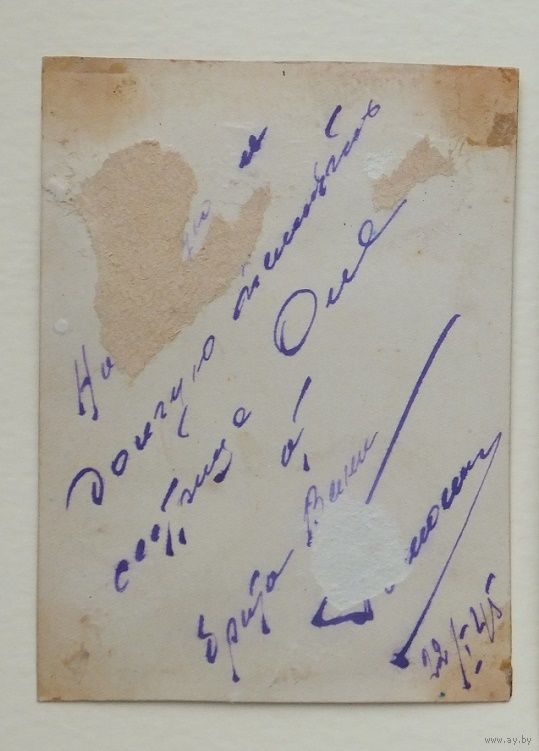 На и
долгую память
сестрице Оле
от
брата Вани
22/I-45
www.ay.by